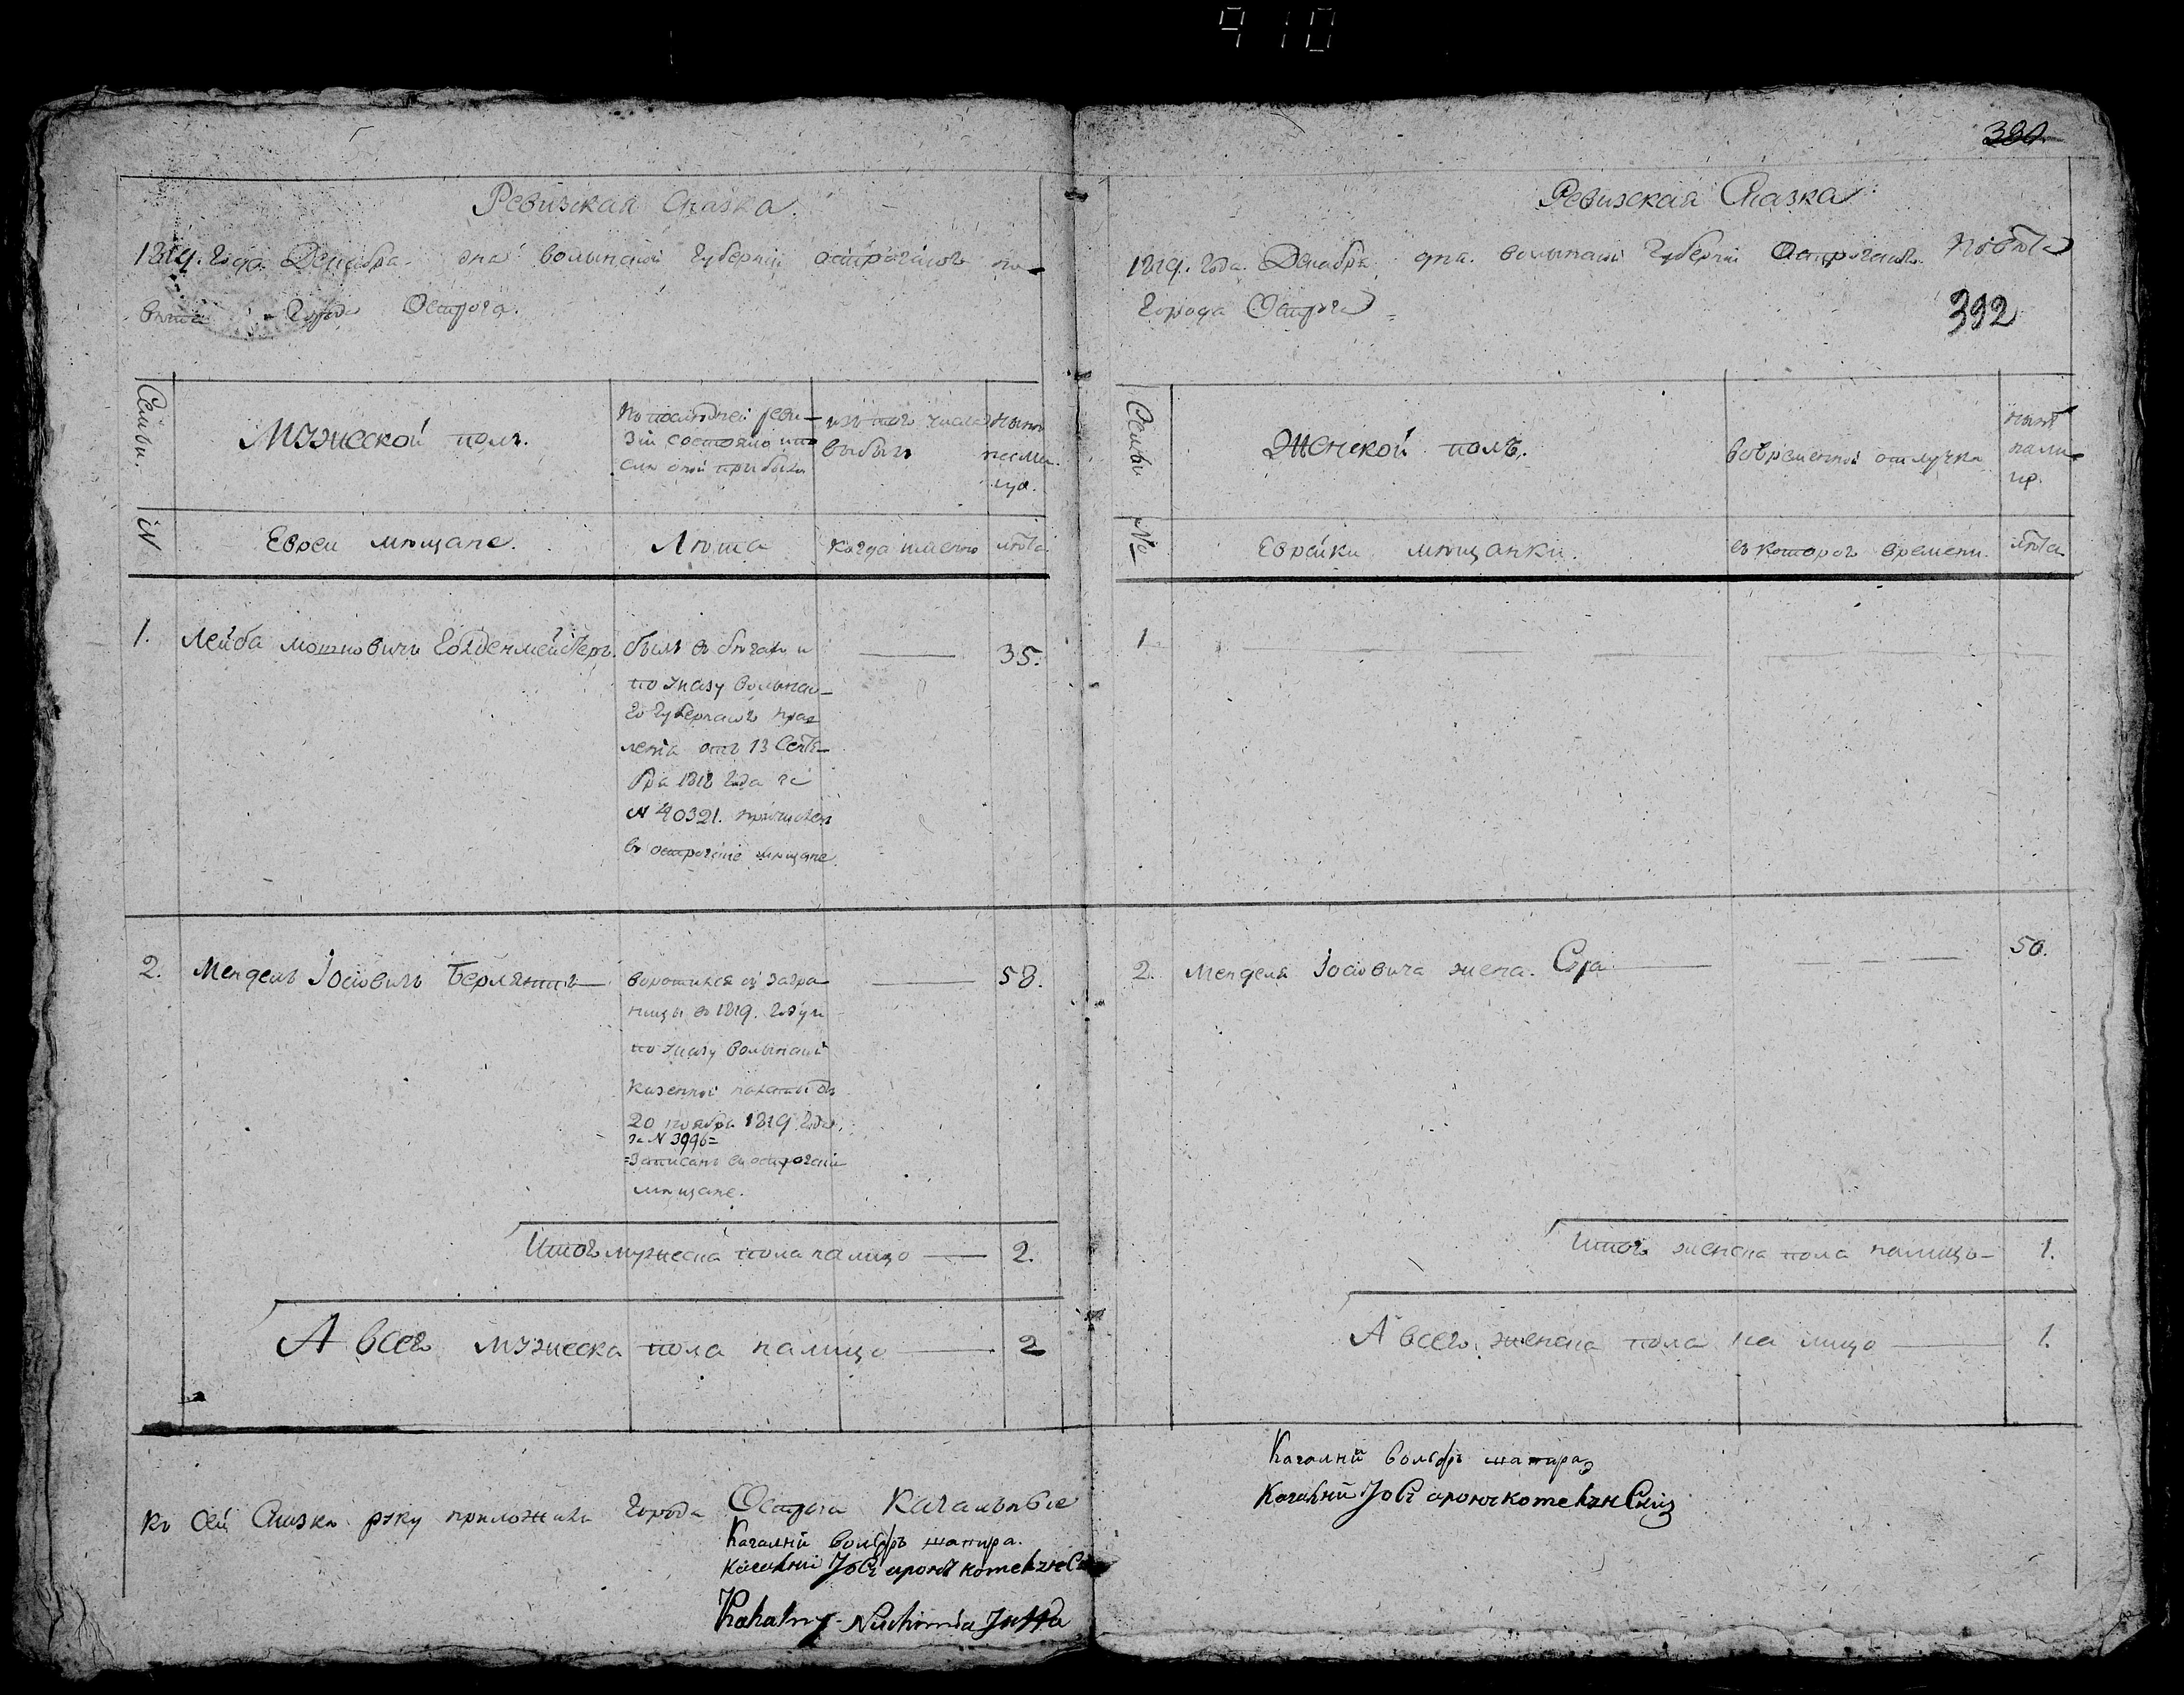 410
380
Ревизская Сказка.
1819. года Декабря дня волынской губернии острогского по-
вета Города Острога.
Семьи.
Мужеской полъ.
По последней реви-
зии состояло и по
сле оной прибыло
изъ того числа
выбыло
ныне
на ли-
цо.
N
Евреи мещане.
Лета
когда именно
лета
1. Лейба мошковичъ Голденмейстеръ.
былъ въ бегахъ и
по указу волынско-
го губернского прав
ления отъ 13 Сентя-
бря 1818 года за
N 40321. причисленъ
въ острогские мещане.
35.
2. Мендель Иосiовичъ Берлянтъ
воротился изъ загра
ницы въ 1819. году и
по указу волынской
казенной палаты отъ
20 ноября 1819 года
за N 3996=
=записанъ въ острогские
мещане.
58.
Итого мужеска пола налицо 2.
А всего мужеска пола налицо 2
Къ сей Сказке руку приложили города Острога Кагальные
Кагалній волфъ шапира.
Кагалній
Kahalny Nuchim
Ревизская Сказка
1819. года. Декабря дня. волынской Губернии Острогского Повѣта
Города Острога
392
Семьи
Женской полъ.
во временной отлучке
ныне
нали
цо.
№
Еврейки мещанки.
съ которого времени.
лѣта
1
2. Менделя Иосiовича жена. Сура
50.
Итого женска пола налицо 1.
А всего женска пола на лицо 1.
Кагалній волфъ шапира
Кагалній